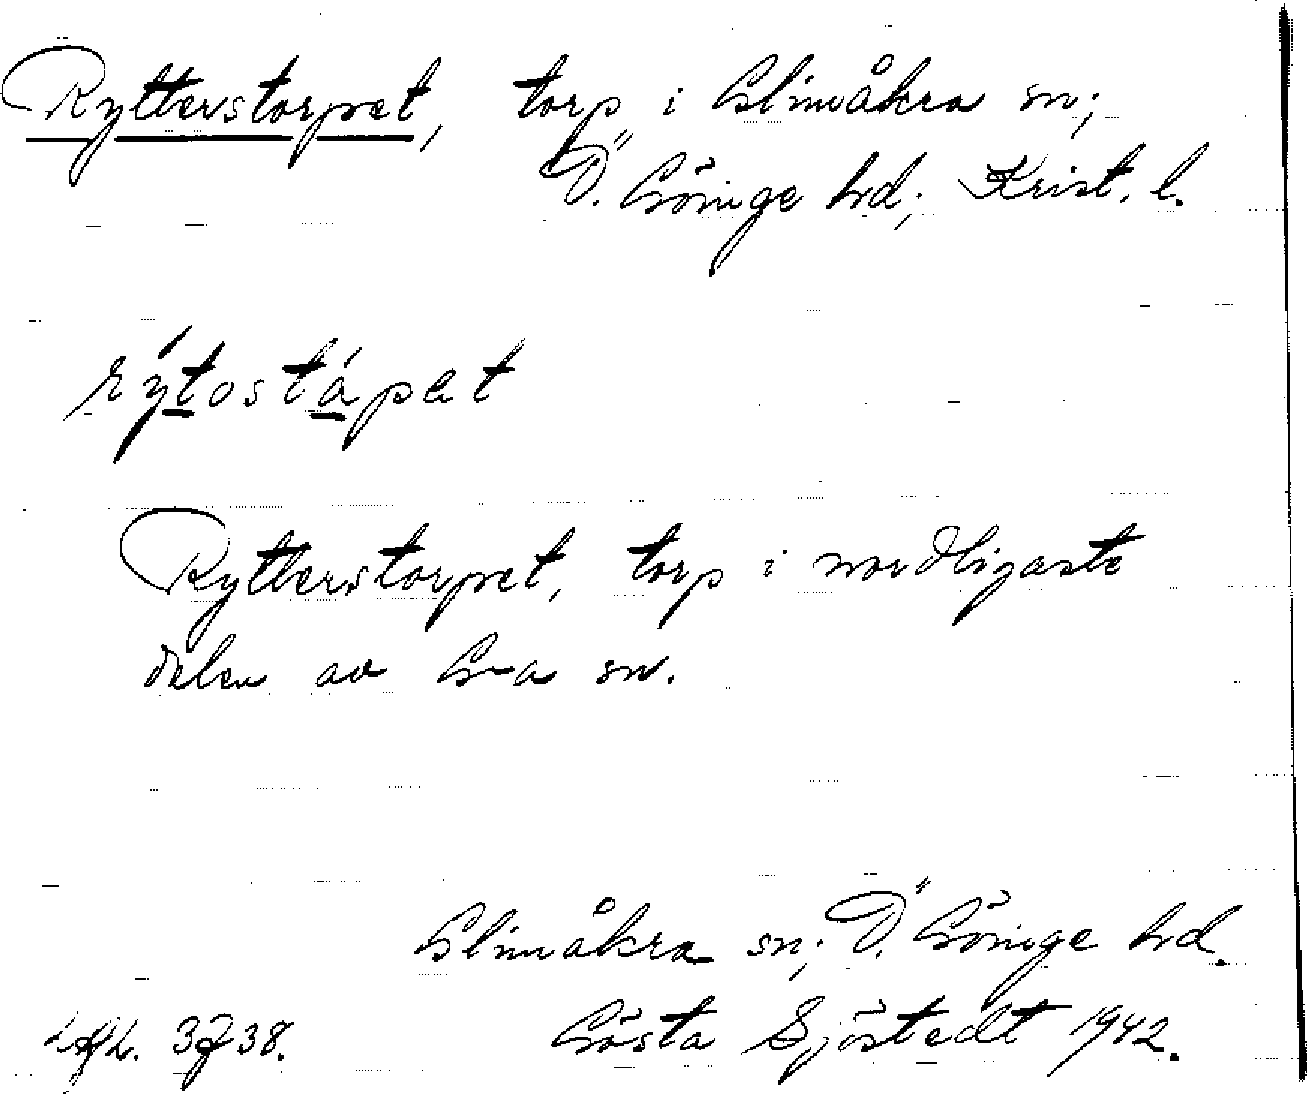 Rytterstorpet, torp i Glimåkra sn;
Ö. Göinge hd; Krist. l.
rýtostápet
Rytterstorpet, torp i nordligaste
delen av G-a sn.
Glimåkra sn; Ö. Göinge hd.
Gösta Sjöstedt 1942.